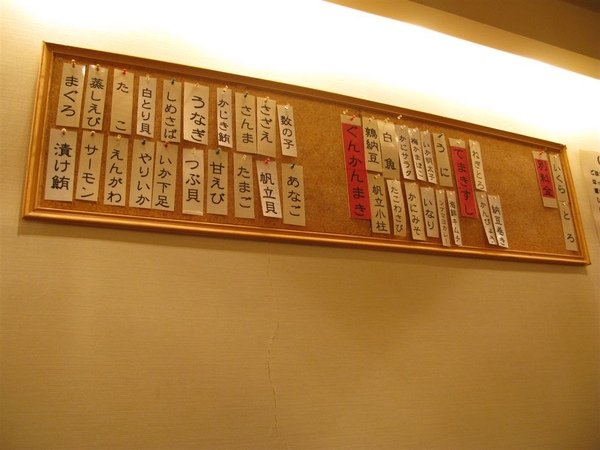 まぐろ
蒸しえび
たこ
白とり貝
しめさば
うなぎ
かじき鮪
さんま
さざえ
数の子
漬け鮪
サーモン
えんがわ
やりいか
いか下足
つぶ貝
甘えび
たまご
帆立貝
あなご
ぐんかんまき
鶏納豆
白魚
かにサラダ
いか明太子
うに
帆立小柱
たこわさび
かにみそ
いなり
海鮮キムチ
てまきずし
ねぎとろ
かんぴょう
納豆巻き
別料金
いくら
とろ